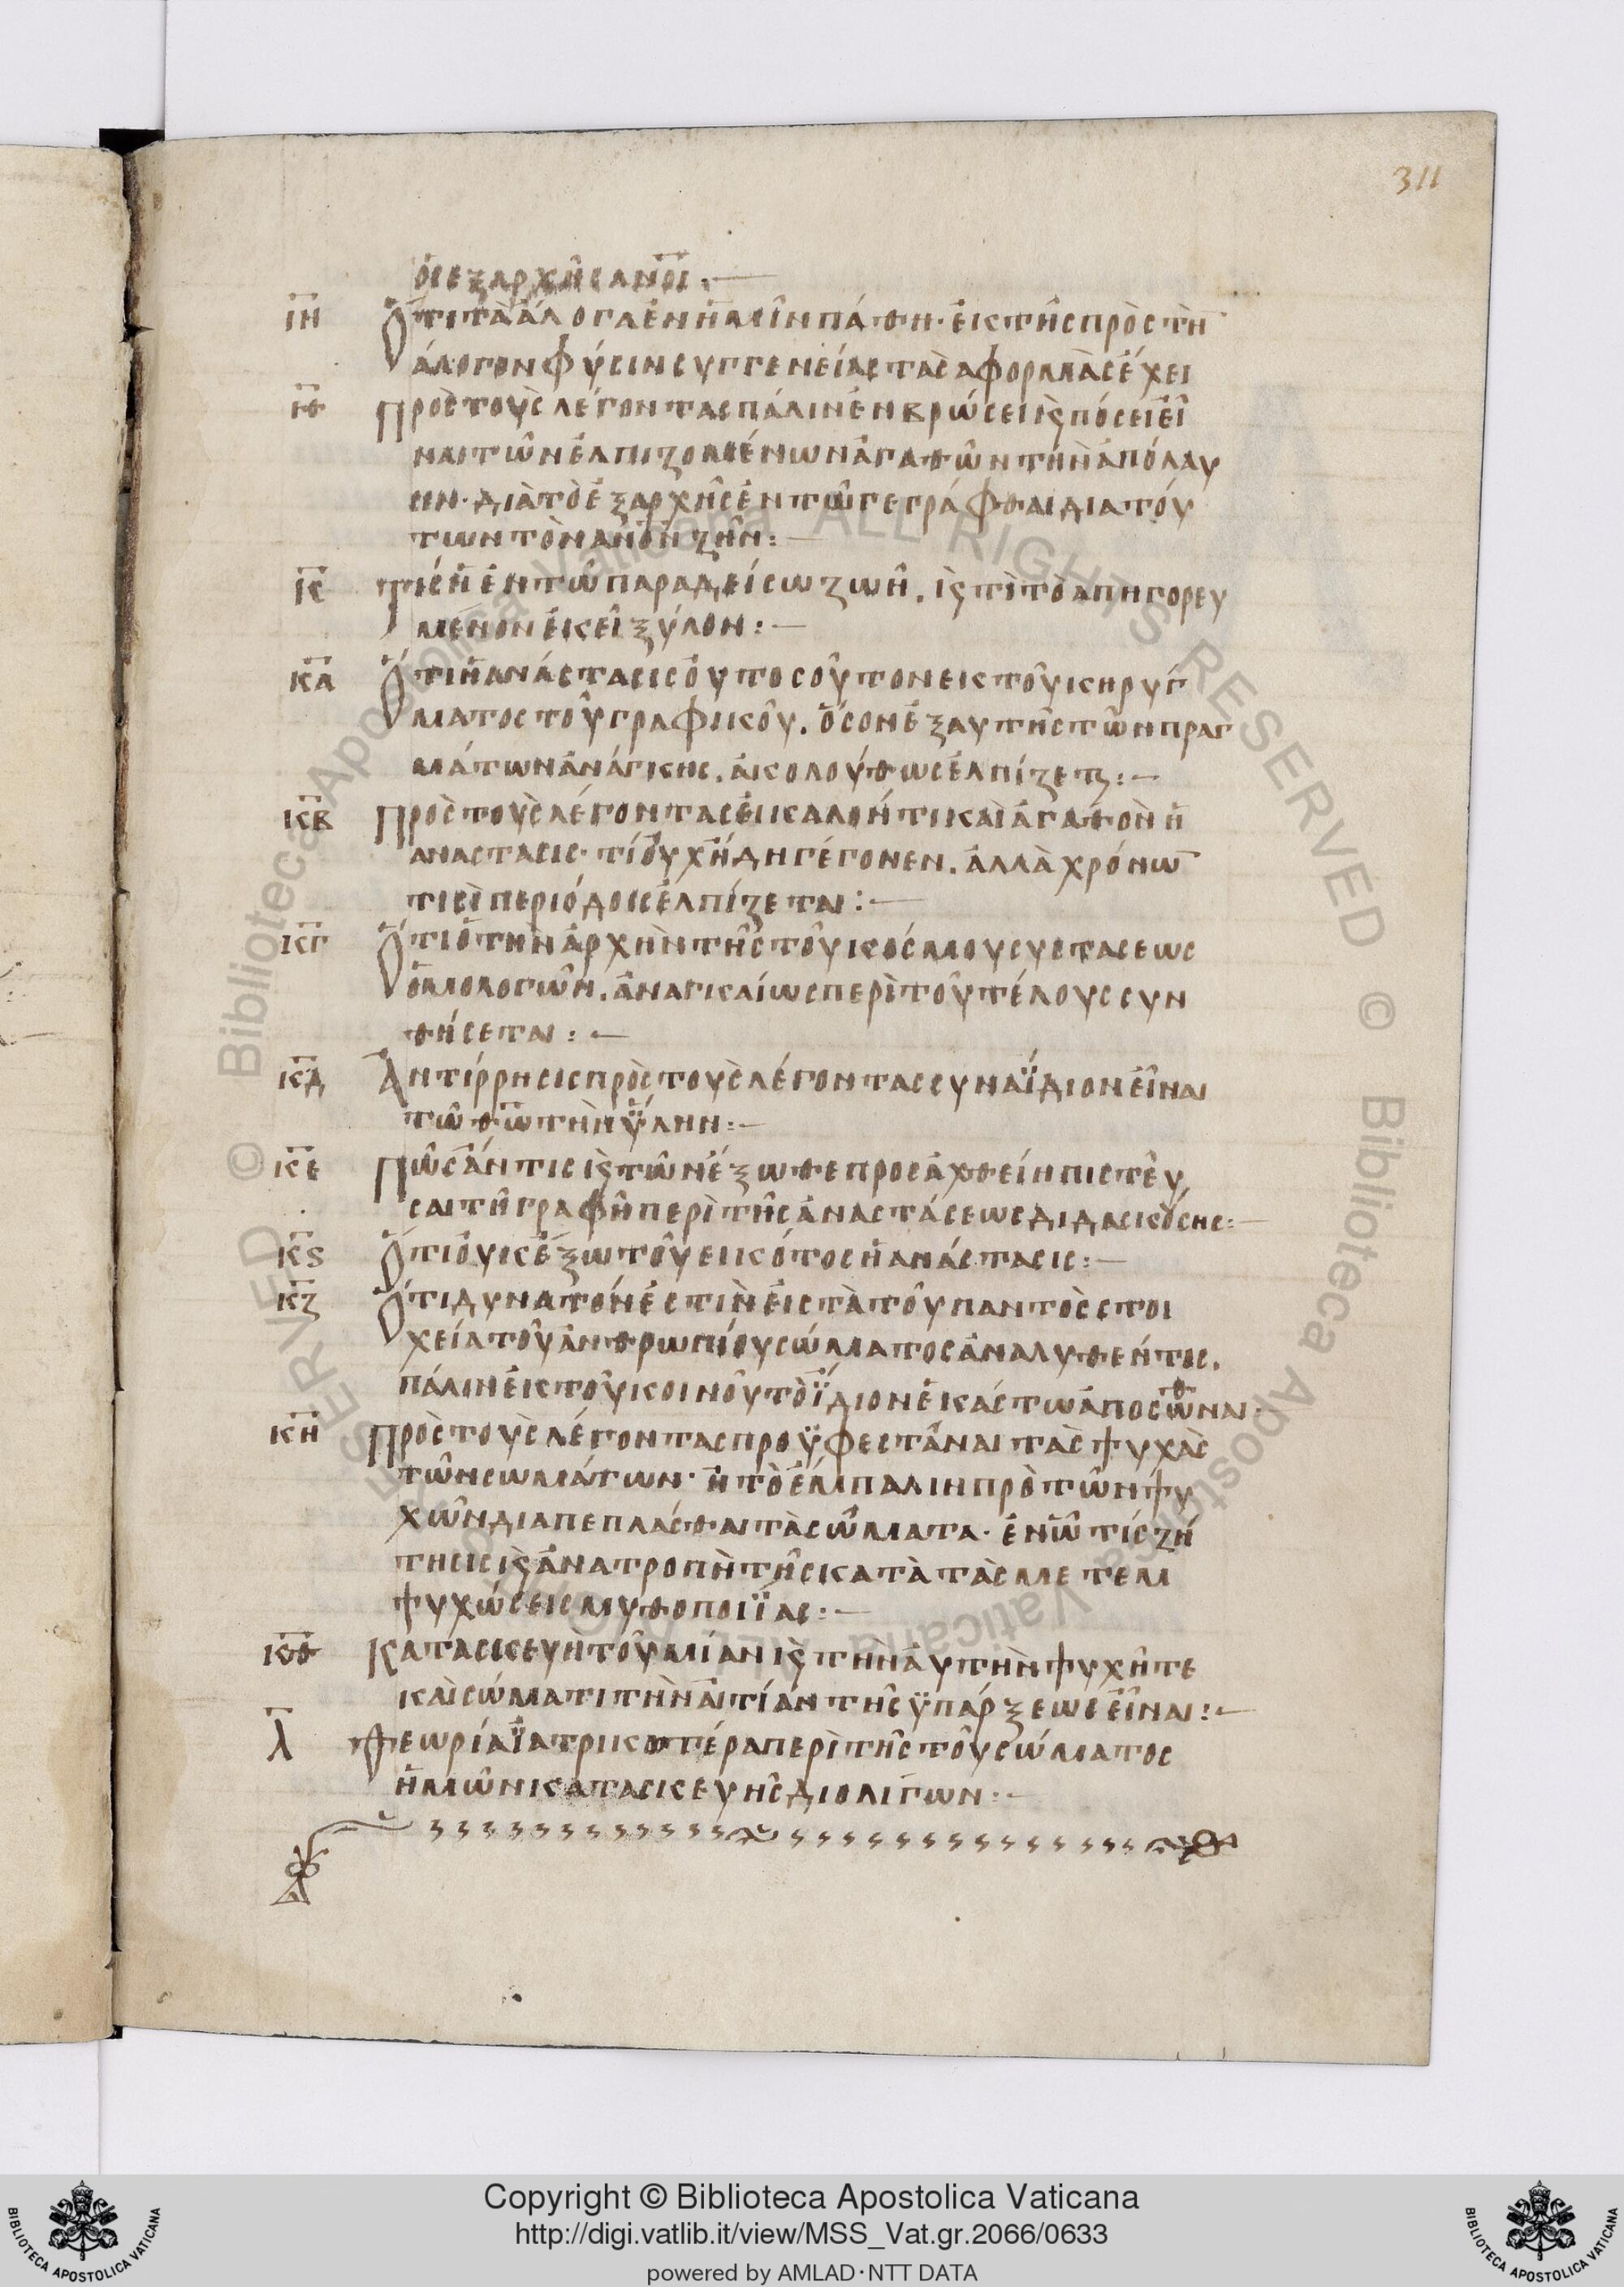 311
ὁς ἐξαρχῆς ἀνος·
ιη Ὅτι τὰ ἄλογα ἐν ἡμῖν πάθη· ἐκ τῆς πρὸς τὴ
ἄλογον φύσιν συγγενείας τὰς ἀφορμὰς ἔχει
ιθ Πρὸς τοὺς λέγοντας πάλιν ἐν βρώσει κ πόσει εἶ
ναι τῶν ἐλπιζομένων ἀγαθῶν τὴν ἀπόλαυ
σιν· διὰ τὸ ἐξαρχῆς ἐν τῷ γεγράφθαι διατού
των τὸν ἀνον ζῆν:
κ τίς ἡ ἐν τῷ παραδείσω ζωὴ. κ τὶ τὸ ἀπηγορευ
μένον ἐκεῖ ξύλον:
κα Ὅτι ἡ ἀνάστασις οὐ τοσοῦτον ἐκ τοῦ κηρύγ
ματος τοῦ γραφικοῦ. ὅσον ἐξ αὐτῆς τῶν πραγ
μάτων ἀνάγκης. ἀκολούθως ἐλπίζετ:
κβ Πρὸς τοὺς λέγοντας εἰ καλόν τι καὶ ἀγαθὸν ἡ
ἀναστασις· τί οὐχ ἤδη γέγονεν. ἀλλὰ χρόνω
τισὶ περιόδοις ἐλπίζεται:
κγ Ὅτι ὁ τὴν ἀρχὴν τῆς τοῦ κόσμου συστασεως
ὁμολογῶν. ἀναγκαίως περὶ τοῦ τέλους συν
θήσεται:
κδ Ἀντίρρησις πρὸς τοὺς λέγοντας συναΐδιον εἶναι
τῷ θω τὴν ὕλην:
κε Πῶς ἄν τις κ τῶν ἔξωθε προσαχθείη πιστεῦ
σαι τῇ γραφῇ περὶ τῆς ἀναστάσεως διδασκούσης:
κς Ὅτι οὐκ ἔξω τοῦ εἰκότος ἡ ἀνάστασις:
κζ Ὅτι δυνατόν ἐστιν εἰς τὰ τοῦ παντὸς στοι
χεῖα τοῦ ἀνθρωπίου σώματος ἀναλυθέντος.
πάλιν ἐκ τοῦ κοινοῦ τὸ ΐδιον ἑκάστω ἀποσωθῆναι·
κη Πρὸς τοὺς λέγοντας προϋφεστάναι τὰς ψυχὰς
τῶν σωμάτων· ἢ τὸ ἔμπαλιν πρὸ τῶν ψυ
χῶν διαπεπλάσθαι τὰ σώματα· ἐν ᾧ τίς ζή
τησις κ ἀνατροπὴ τῆς κατὰ τὰς μετεμ
ψυχώσεις μυθοποιΐας:
κθ Κατασκευὴ τοῦ μίαν κ τὴν αὐτὴν ψυχῇ τε
καὶ σώματι τὴν αἰτίαν τῆς ὑπάρξεως εἶναι:
λ Θεωρία ϊατρικοτέρα περὶ τῆς τοῦ σώματος
ἡμῶν κατασκευῆς διολίγων:
ALL RIGHTS RESERVED © Biblioteca Apostolica Vaticana
Copyright © Biblioteca Apostolica Vaticana
http://digi.vatlib.it/view/MSS_Vat.gr.2066/0633
powered by AMLAD·NTT DATA
BIBLIOTECA APOSTOLICA VATICANA
BIBLIOTECA APOSTOLICA VATICANA